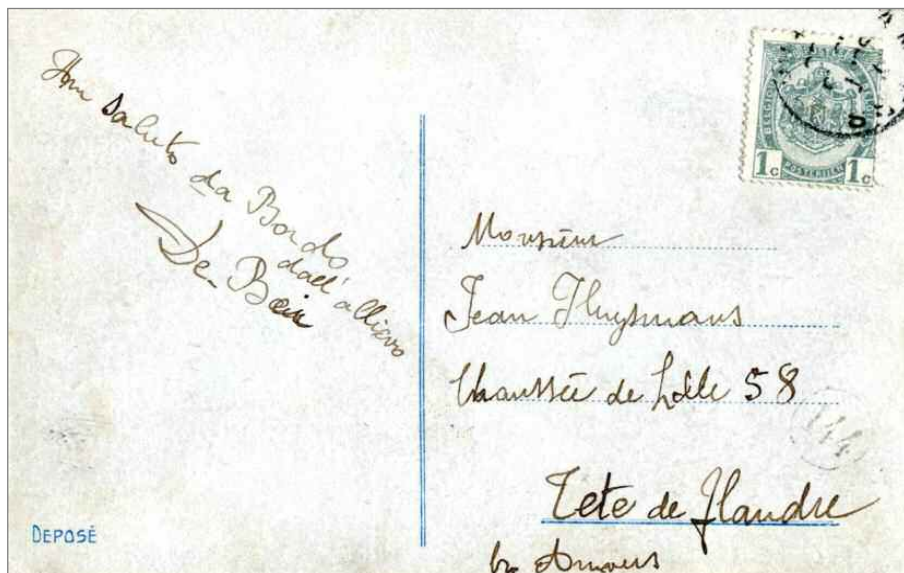 Un saluto da Bordo
dall'allievo
De Beir
DEPOSÉ
BELGIQUE
POSTERIJEN
1c 1c
Monsieur
Jean Huysmans
Chaussée de Lille 58
144
Tete de Flandre
Anvers